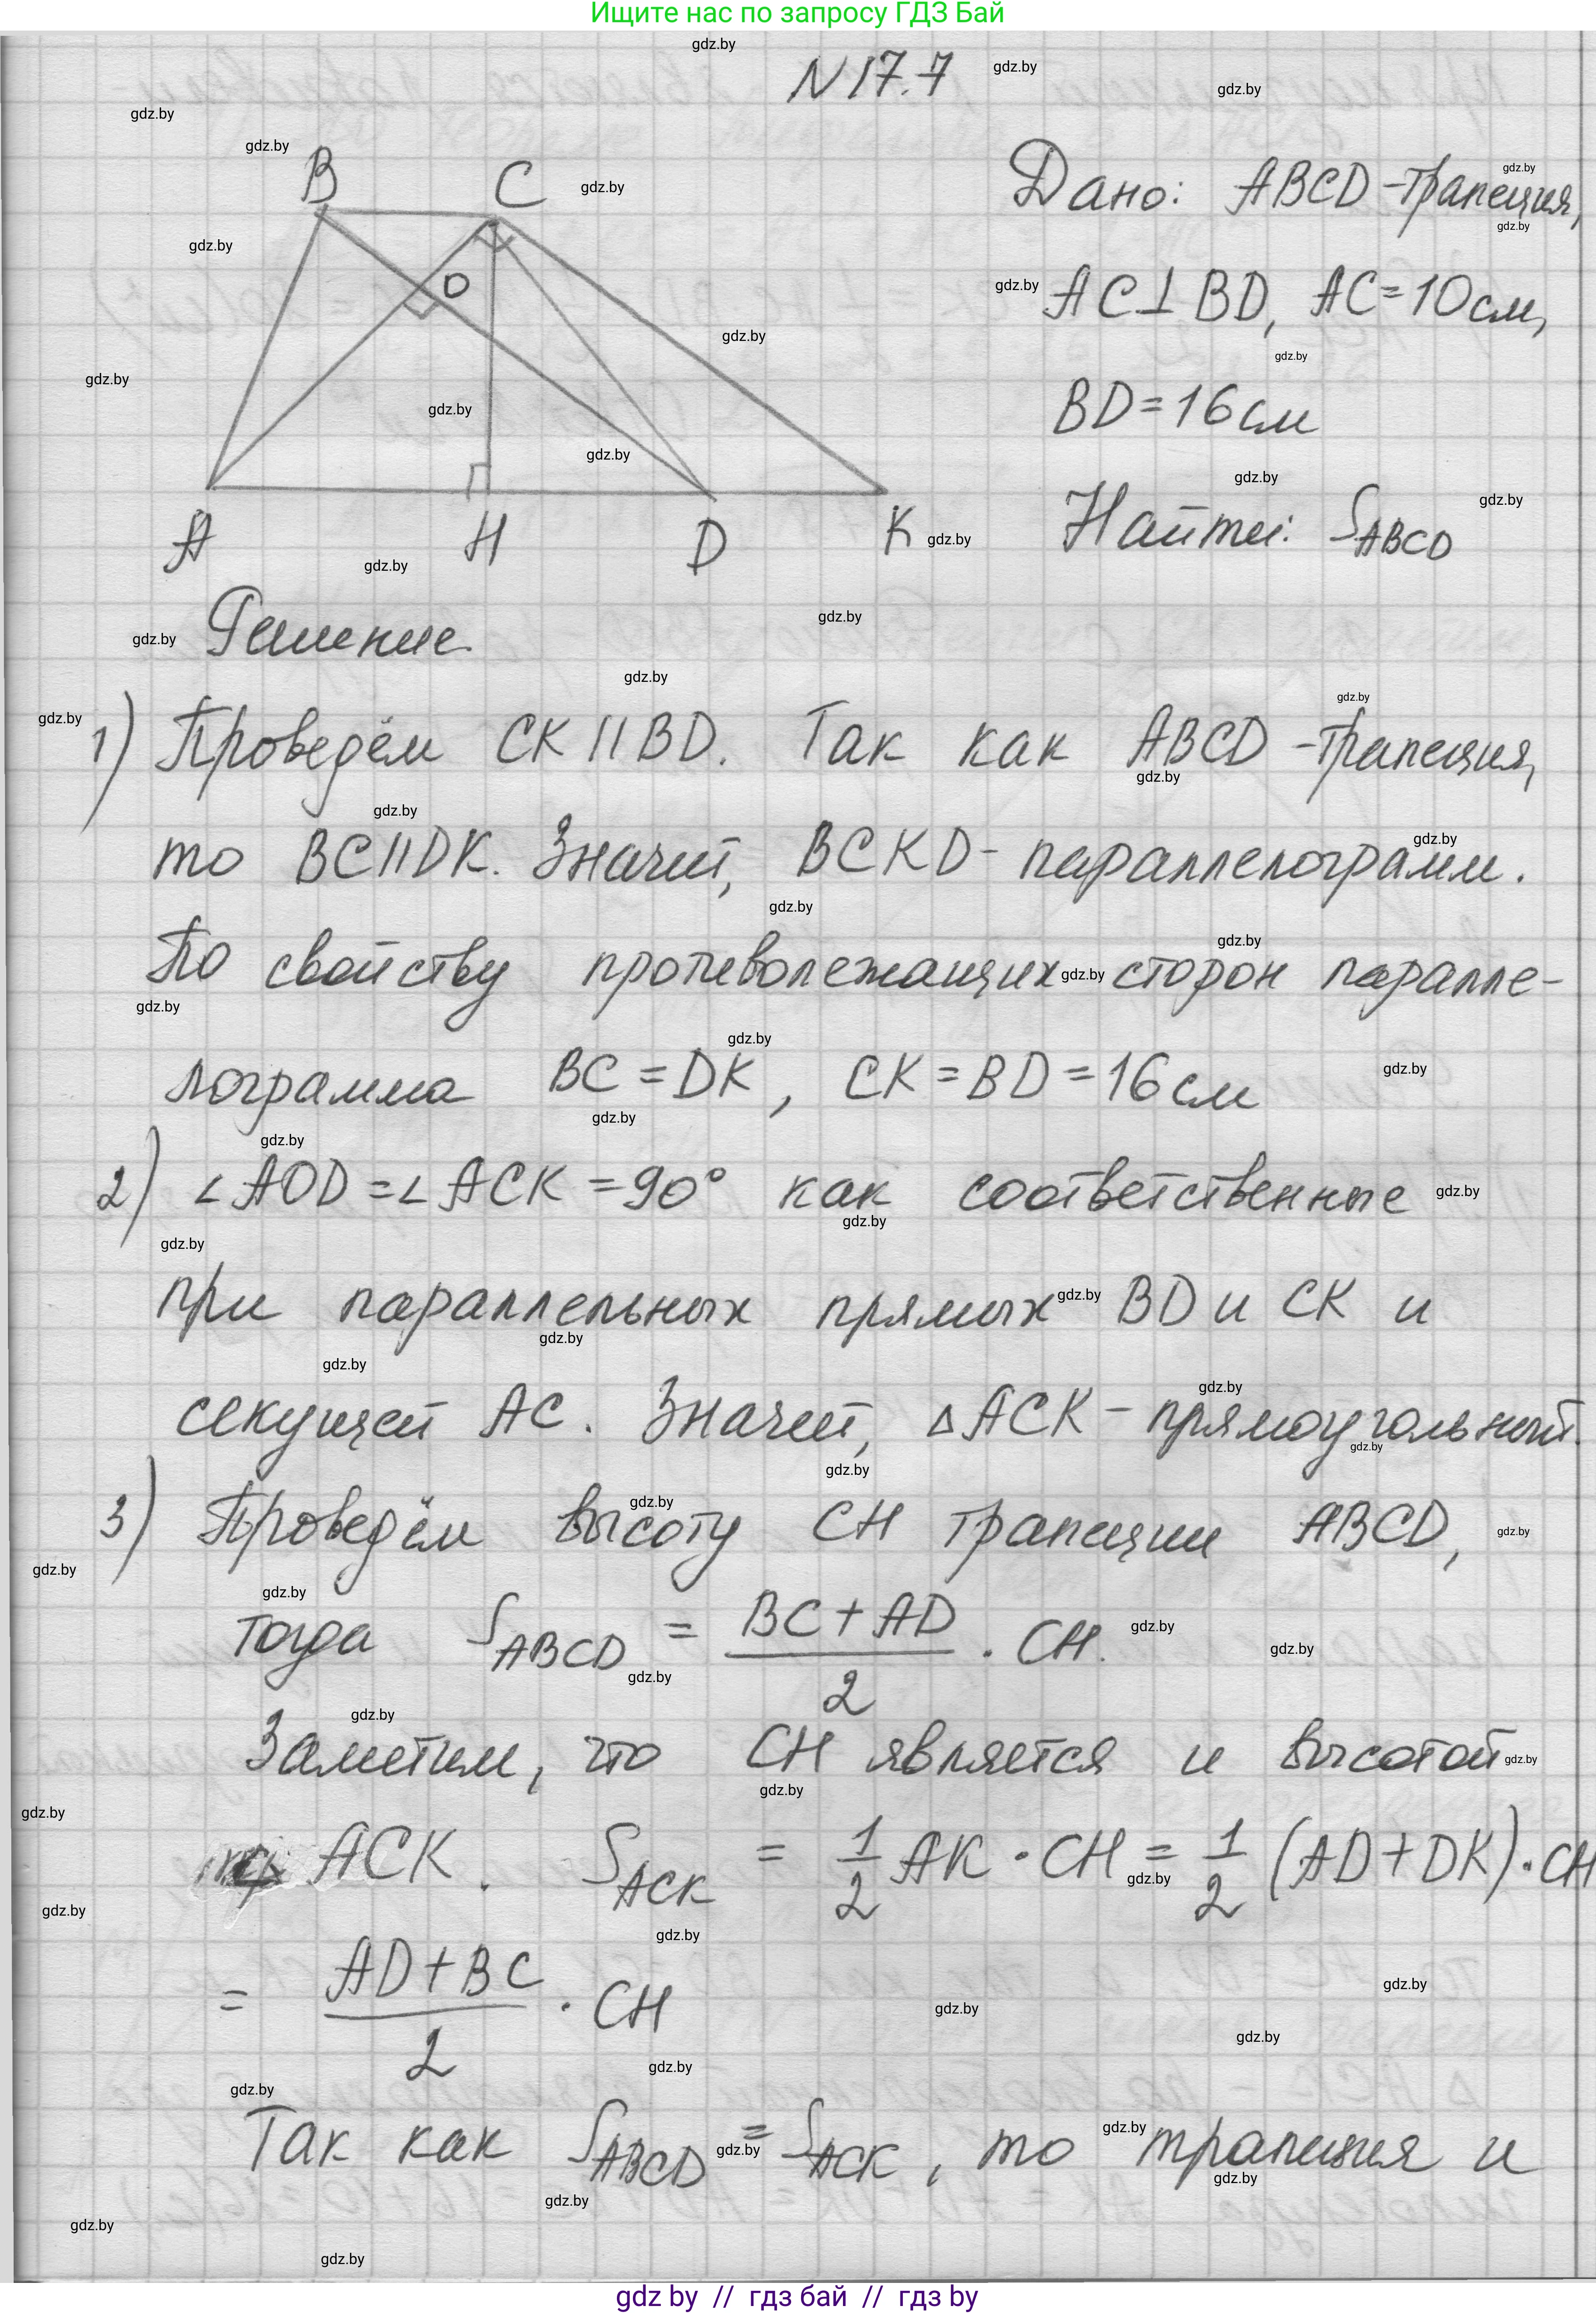 Ищите нас по запросу ГДЗ Бай
N 17.7
B C
O
A H D K
Дано: ABCD - трапеция,
AC ⊥ BD, AC = 10 см,
BD = 16 см
Найти: S_ABCD
Решение
1) Проведём CK || BD. Так как ABCD - трапеция,
то BC || DK. Значит, BCKD - параллелограмм.
По свойству противолежащих сторон паралле-
лограмма BC = DK, CK = BD = 16 см
2) ∠AOD = ∠ACK = 90° как соответственные
при параллельных прямых BD и CK и
секущей AC. Значит, △ACK - прямоугольный.
3) Проведём высоту CH трапеции ABCD,
тогда S_ABCD = (BC + AD)/2 · CH.
Заметим, что CH является и высотой
ACK. S_ACK = 1/2 AK · CH = 1/2 (AD + DK) · CH
= (AD + BC)/2 · CH
Так как S_ABCD = S_ACK, то трапеция и
gdz by // гдз бай // гдз by